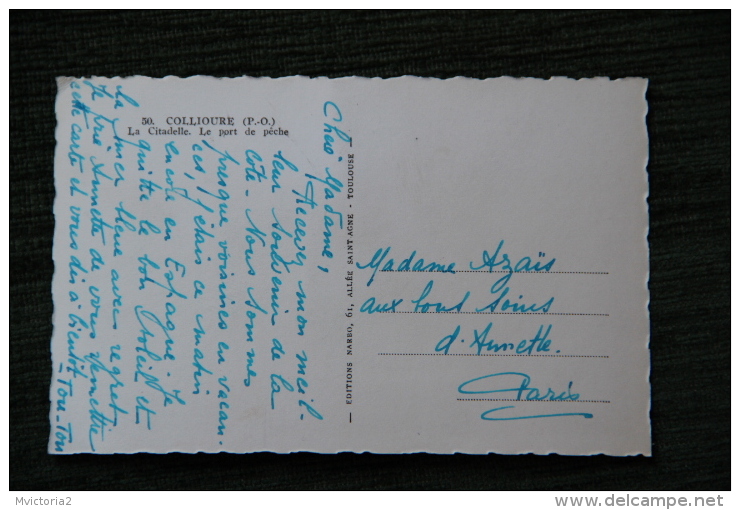 50. COLLIOURE (P.-O.)
La Citadelle. Le port de pêche
Chère Madame,
Recevez mon meil-
leur souvenir de la
côte. Nous sommes
presque voisines en vacan-
ces, j'étais ce matin
encore en Espagne. Je
quitte le bon soleil et
la mer bleue avec regret
Je prie Annette de vous remettre
cette carte et vous dis à bientôt
- Tou-Tou
— EDITIONS NARBO, 61, ALLÉE SAINT-AGNE - TOULOUSE —
Madame Azaïs
aux bons soins
d'Annette.
Paris
Mvictoria2
www.delcampe.net